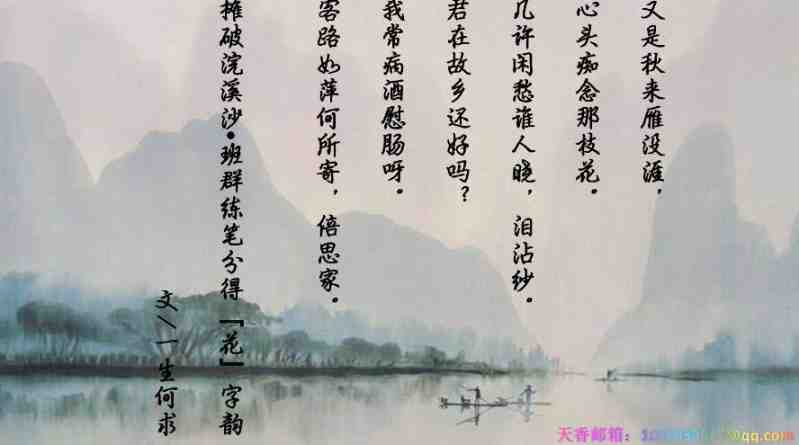 又是秋来雁没涯，
心头痴念那枝花。
几许闲愁谁人晓，泪沾纱。
君在故乡还好吗？
我常病酒慰肠呀。
客路如萍何所寄，倍思家。
摊破浣溪沙·班群练笔分得『花』字韵
文\一生何求
天香邮箱：@qq.com